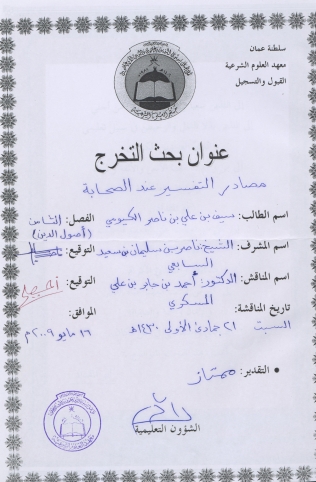 سلطنة عمان
معهد العلوم الشرعية
القبول والتسجيل
عنوان بحث التخرج
مصادر التفسير عند الصحابة
اسم الطالب: سيف بن علي بن ناصر الكيومي الفصل: الثامن
(أصول الدين)
اسم المشرف: الشيخ: ناصر بن سليمان بن سعيد التوقيع:
السابعي
اسم المناقش: الدكتور: أحمد بن جابر بن علي التوقيع:
المسكري
تاريخ المناقشة: الموافق:
السبت ٢١ جمادى الأولى ١٤٣٠هـ ١٦ مايو ٢٠٠٩م
• التقدير: ممتاز
الشؤون التعليمية